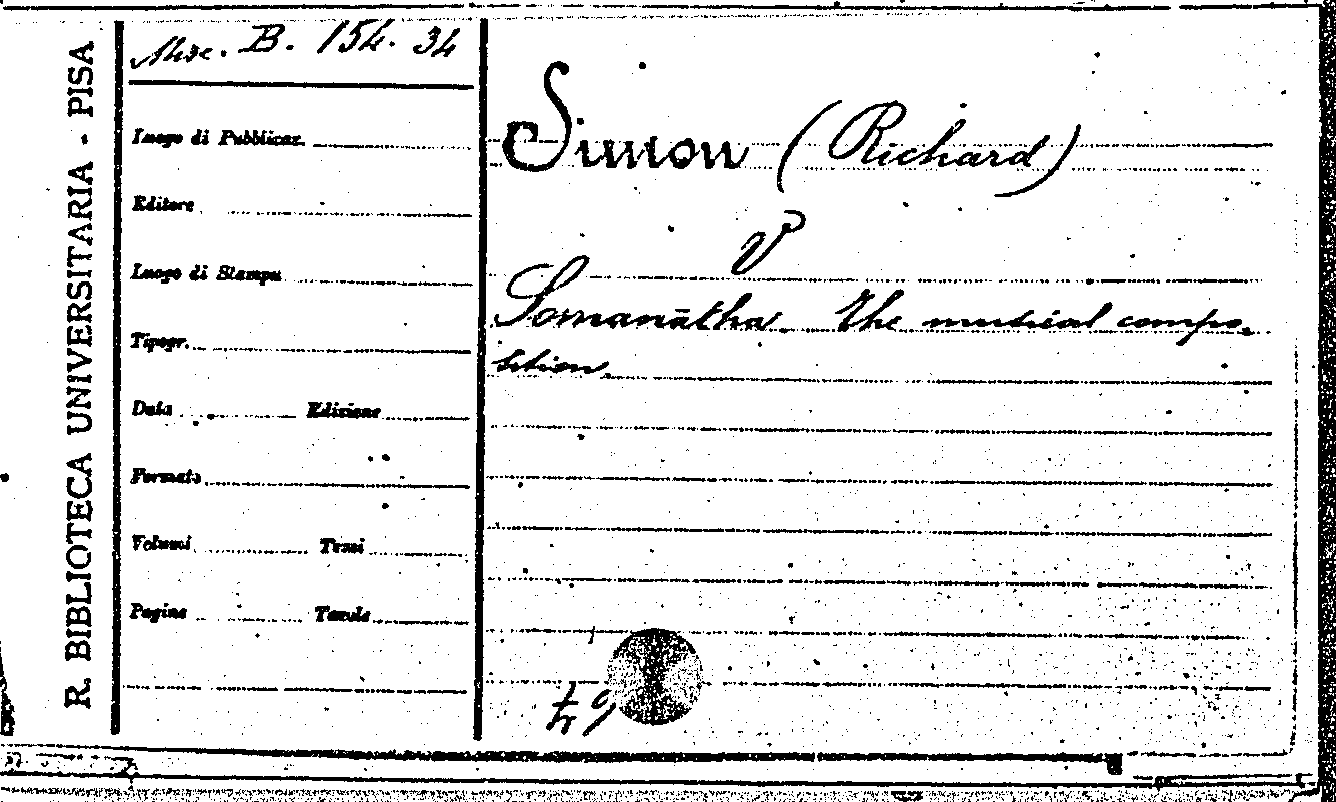 R. BIBLIOTECA UNIVERSITARIA - PISA
Misc. B. 154. 34
Luogo di Pubblicaz.
Editore
Luogo di Stampa
Tipogr.
Data Edizione
Formato
Volumi Tomi
Pagine Tavole
Simon (Richard)
V
Somanātha. The musical compo-
sition.